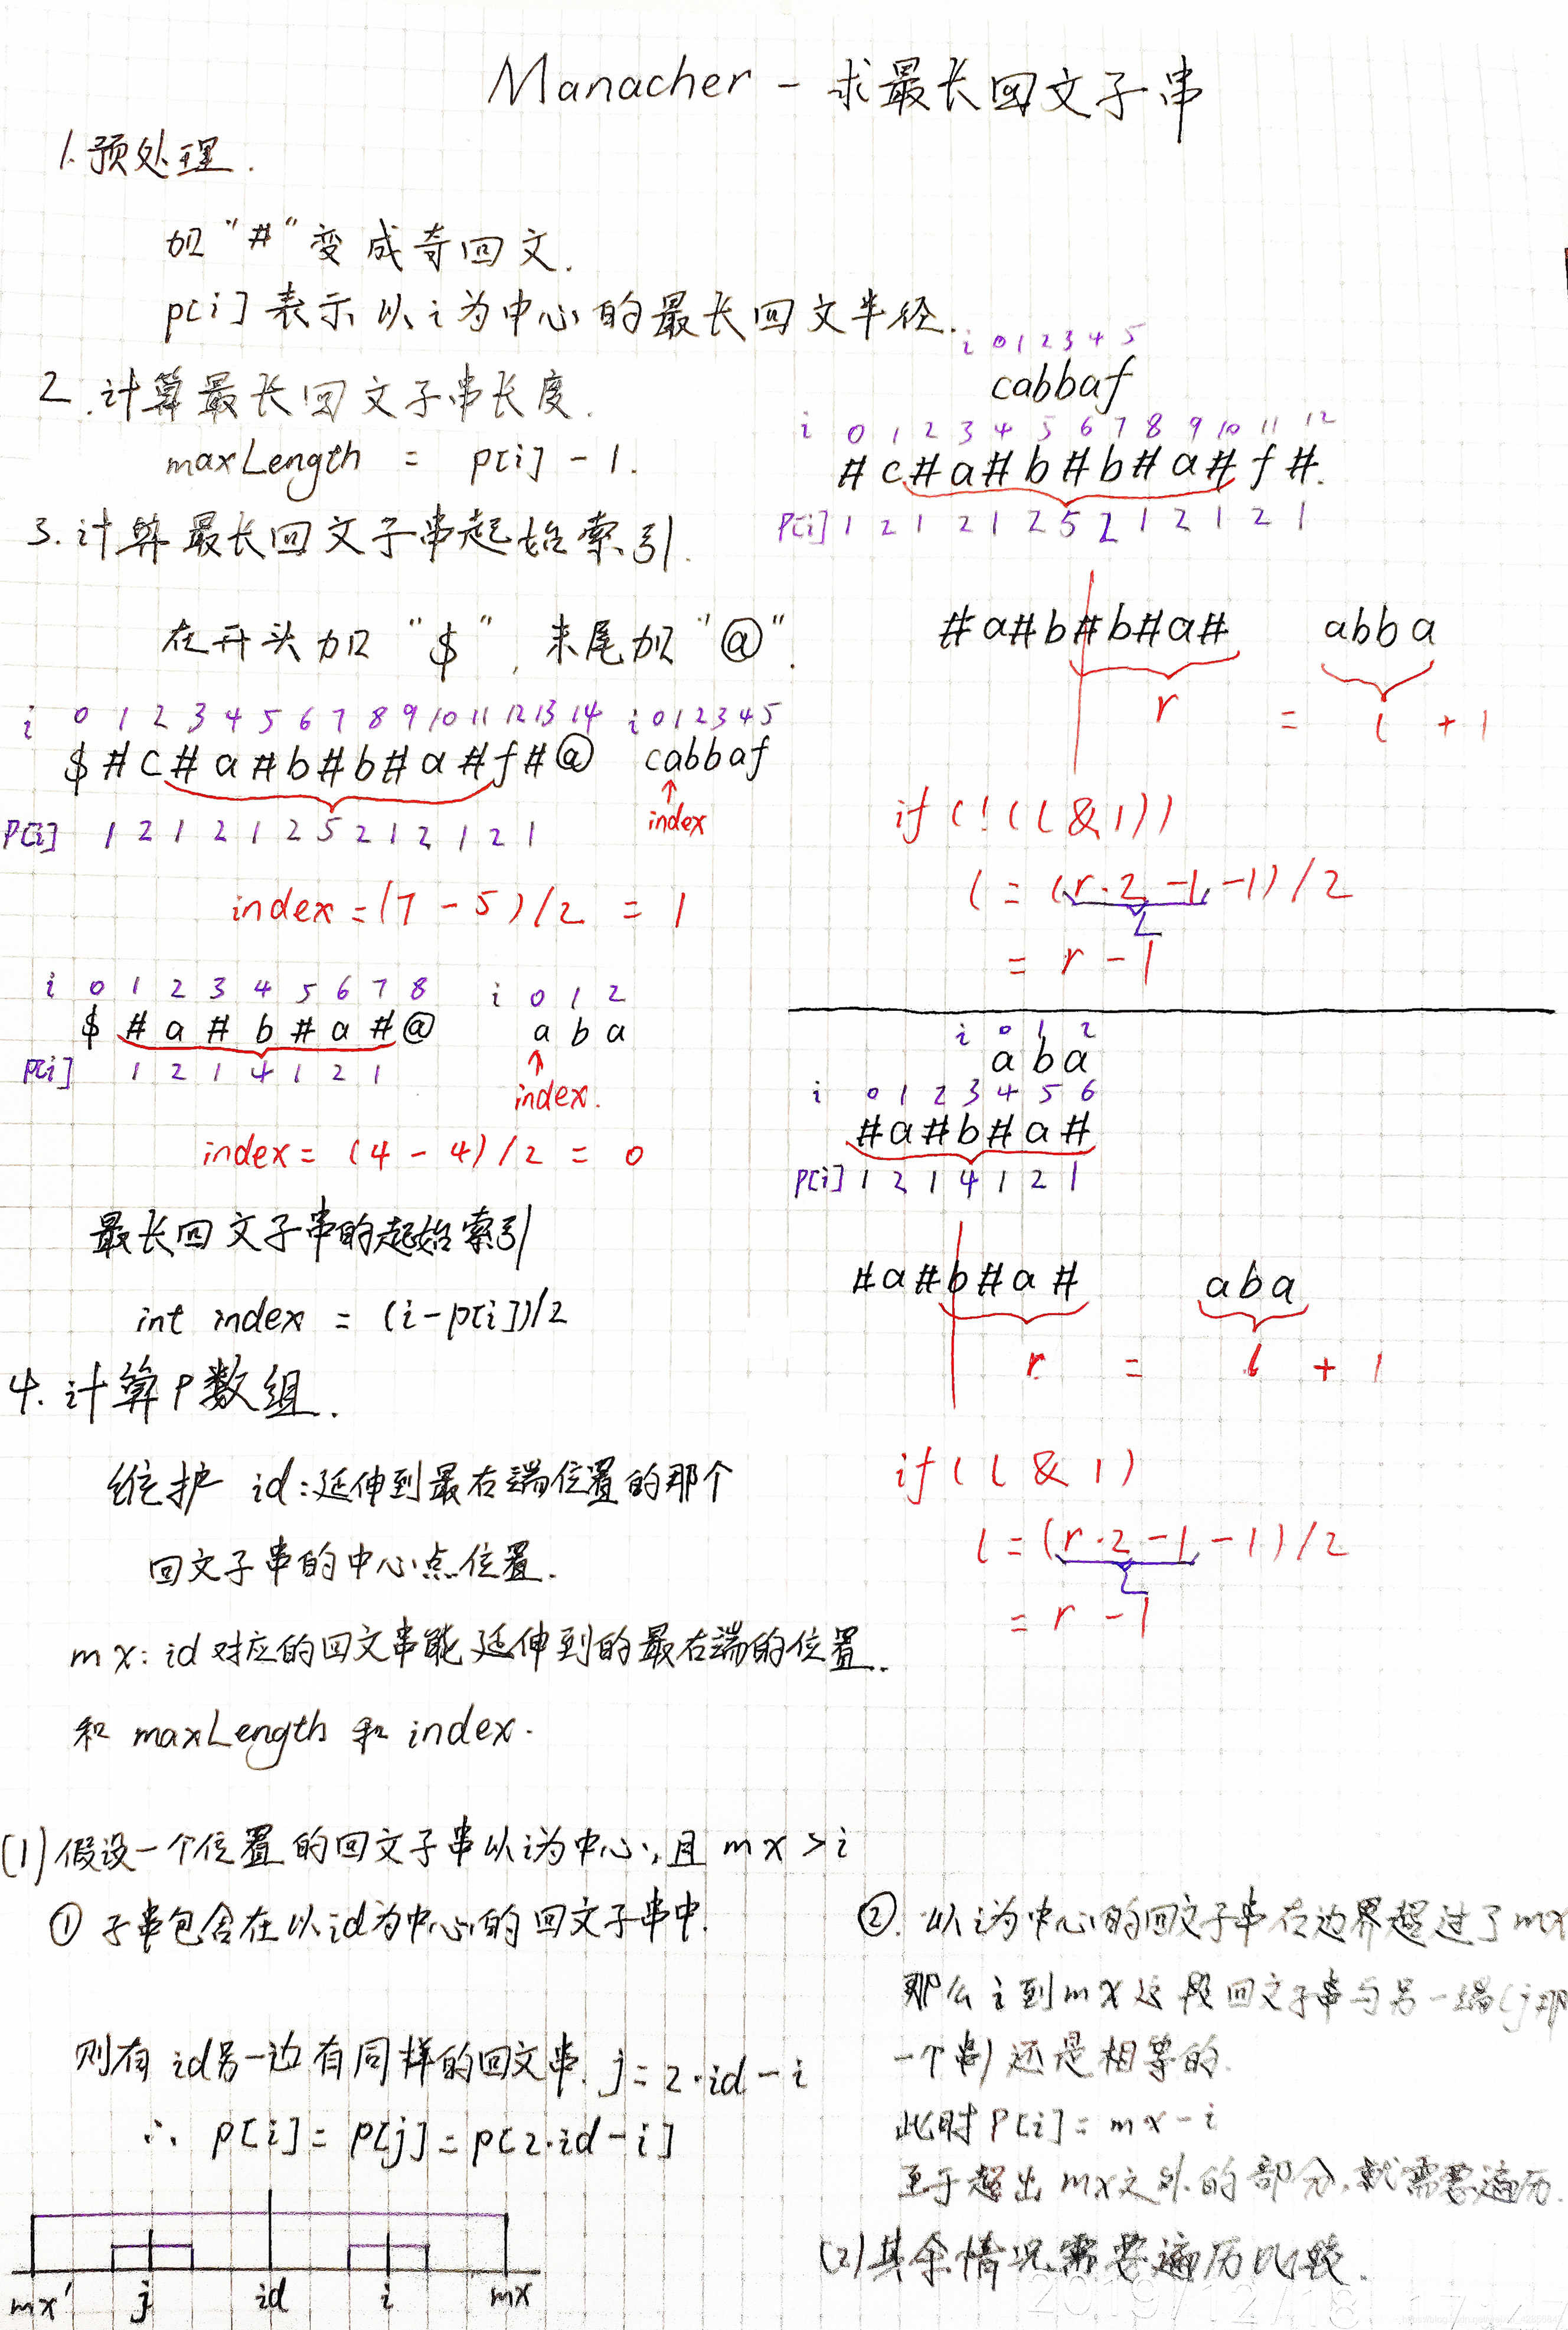 Manacher - 求最长回文子串
1.预处理.
加"#"变成奇回文.
p[i]表示以i为中心的最长回文半径.
2.计算最长回文子串长度.
maxLength = p[i] - 1.
3.计算最长回文子串起始索引.
在开头加"$",末尾加"@".
i 0 1 2 3 4 5 6 7 8 9 10 11 12 13 14 i 0 1 2 3 4 5
$#c#a#b#b#a#f#@ cabbaf
P[i] 1 2 1 2 1 2 5 2 1 2 1 2 1
↑
index
index = (7 - 5)/2 = 1
i 0 1 2 3 4 5 6 7 8 i 0 1 2
$ # a # b # a # @ a b a
P[i] 1 2 1 4 1 2 1
↑
index.
index = (4 - 4)/2 = 0
最长回文子串的起始索引
int index = (i-p[i])/2
i 0 1 2 3 4 5
cabbaf
i 0 1 2 3 4 5 6 7 8 9 10 11 12
#c#a#b#b#a#f#.
P[i] 1 2 1 2 1 2 5 2 1 2 1 2 1
#a#b#b#a# abba
r = l + 1
if(!(l&1))
l = (r·2-1-1)/2
L
= r - 1
i 0 1 2
a b a
i 0 1 2 3 4 5 6
#a#b#a#
P[i] 1 2 1 4 1 2 1
#a#b#a# aba
r = l + 1
if(l & 1)
l = (r·2-1-1)/2
L
= r - 1
4.计算P数组.
维护 id:延伸到最右端位置的那个
回文子串的中心点位置.
mx: id对应的回文串能延伸到的最右端的位置.
和 maxLength 和 index.
(1)假设一个位置的回文子串以i为中心,且 mx > i
① 子串包含在以id为中心的回文子串中.
则有 id另一边有同样的回文串. j = 2·id - i
∴ p[i] = p[j] = p[2·id - i]
mx' j id i mx
②. 以i为中心的回文子串右边界超过了mx
那么i到mx这段回文子串与另一端(j那
一个串)还是相等的.
此时P[i] = mx - i
至于超出mx之外的部分,就需要遍历.
(2)其余情况需要遍历比较.